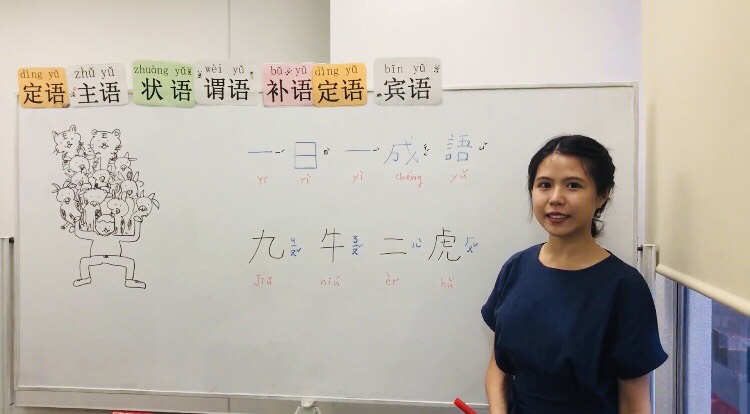 dìng yǔ zhǔ yǔ zhuàng yǔ wèi yǔ bǔ yǔ dìng yǔ bīn yǔ
定语 主语 状语 谓语 补语 定语 宾语
一 日 一 成 語
yī rì yì chéng yǔ
九 牛 二 虎
jiǔ niú èr hǔ